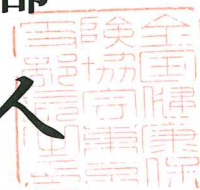 部
人
全国健康保
険協会東京
支部長